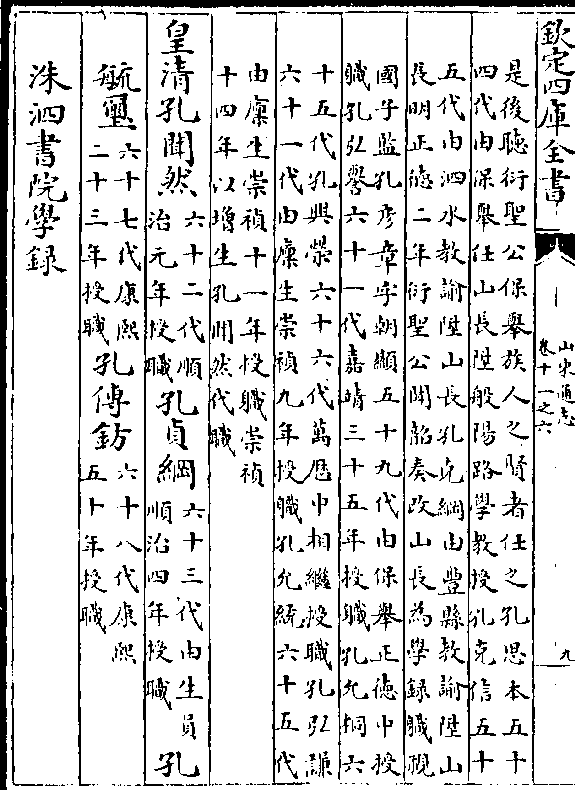 欽定四庫全書
山東通志
卷十一之六
九
是後聽衍聖公保舉族人之賢者任之孔思本五十
四代由保舉任山長陞般陽路學教授孔克信五十
五代由泗水教諭陞山長孔克綱由豐縣教諭陞山
長明正德二年衍聖公聞韶奏改山長為學録職視
國子監孔彦章字朝顯五十九代由保舉正德中授
職孔弘譽六十一代嘉靖三十五年授職孔允桐六
十五代孔興榮六十六代萬厯中相繼授職孔弘謙
六十一代由廩生崇禎九年授職孔允統六十五代
由廩生崇禎十一年授職崇禎
十四年以增生孔聞然代職
皇清孔聞然六十二代順
治元年授職孔貞綱六十三代由生員
順治四年授職孔
毓璽六十七代康熙
二十三年授職孔傳鈁六十八代康熙
五十年授職
洙泗書院學録